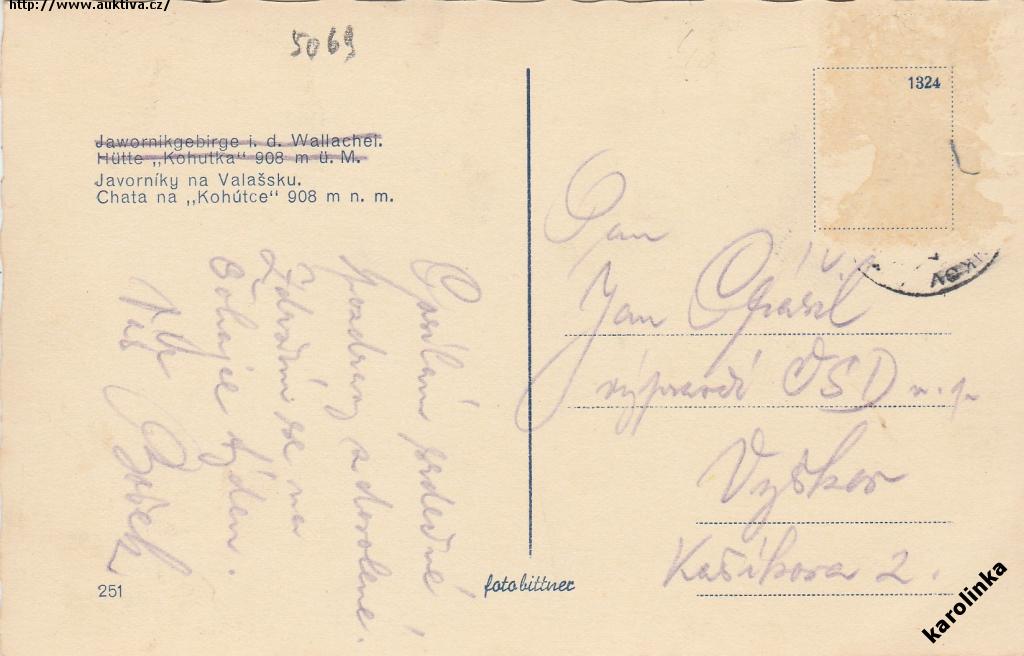 http://www.auktiva.cz/
5069
1324
Jawornikgebirge i. d. Wallachei.
Hütte „Kohutka" 908 m ü. M.
Javorníky na Valašsku.
Chata na „Kohútce" 908 m n. m.
Posílám srdečné
pozdravy z dovolené.
Zdržím se na
týden.
Váš
Pan
Jan
ČSD n. p.
Vyškov
Kašíkova 2.
251
fotobittner
karolinka